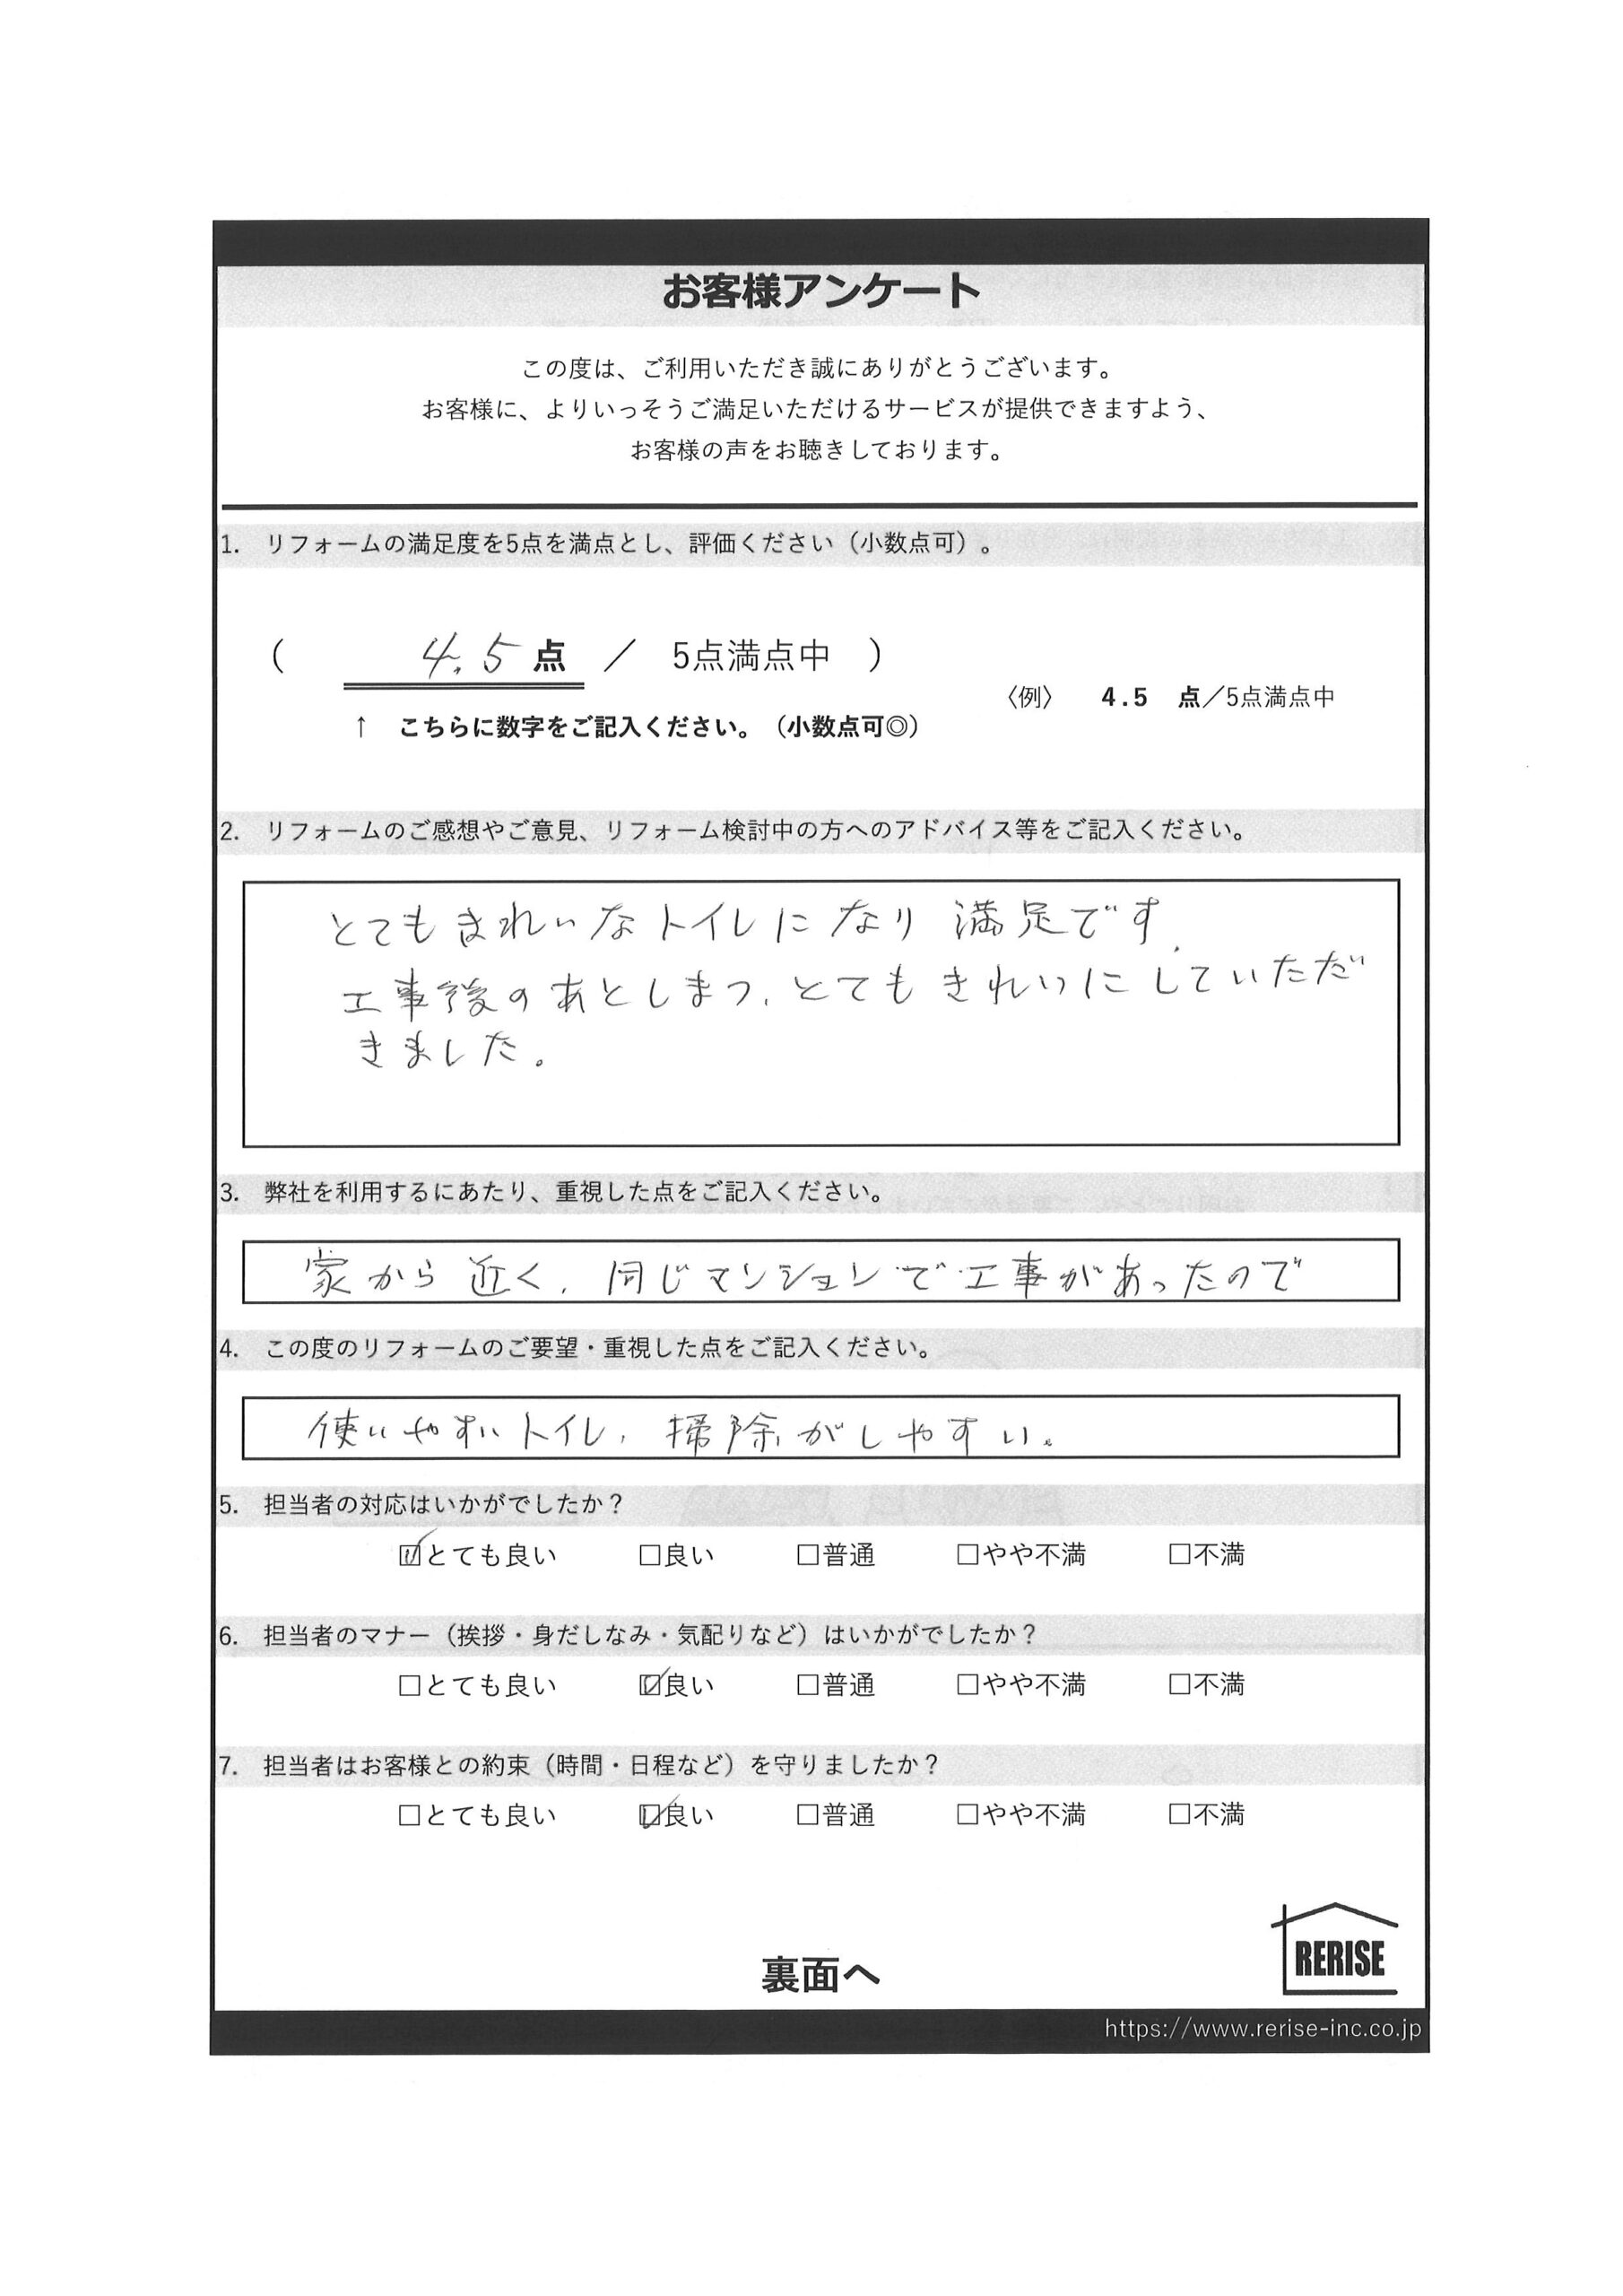 お客様アンケート
この度は、ご利用いただき誠にありがとうございます。
お客様に、よりいっそうご満足いただけるサービスが提供できますよう、
お客様の声をお聴きしております。
1. リフォームの満足度を5点を満点とし、評価ください（小数点可）。
（ 4.5 点 ／ 5点満点中 ）
〈例〉 4.5 点／5点満点中
↑ こちらに数字をご記入ください。（小数点可◎）
2. リフォームのご感想やご意見、リフォーム検討中の方へのアドバイス等をご記入ください。
とてもきれいなトイレになり 満足です.
工事後のあとしまつ、とてもきれいにしていただ
きました。
3. 弊社を利用するにあたり、重視した点をご記入ください。
家から近く、同じマンションで工事があったので
4. この度のリフォームのご要望・重視した点をご記入ください。
使いやすいトイレ、掃除がしやすい。
5. 担当者の対応はいかがでしたか？
☑とても良い □良い □普通 □やや不満 □不満
6. 担当者のマナー（挨拶・身だしなみ・気配りなど）はいかがでしたか？
□とても良い ☑良い □普通 □やや不満 □不満
7. 担当者はお客様との約束（時間・日程など）を守りましたか？
□とても良い ☑良い □普通 □やや不満 □不満
RERISE
裏面へ
https://www.rerise-inc.co.jp